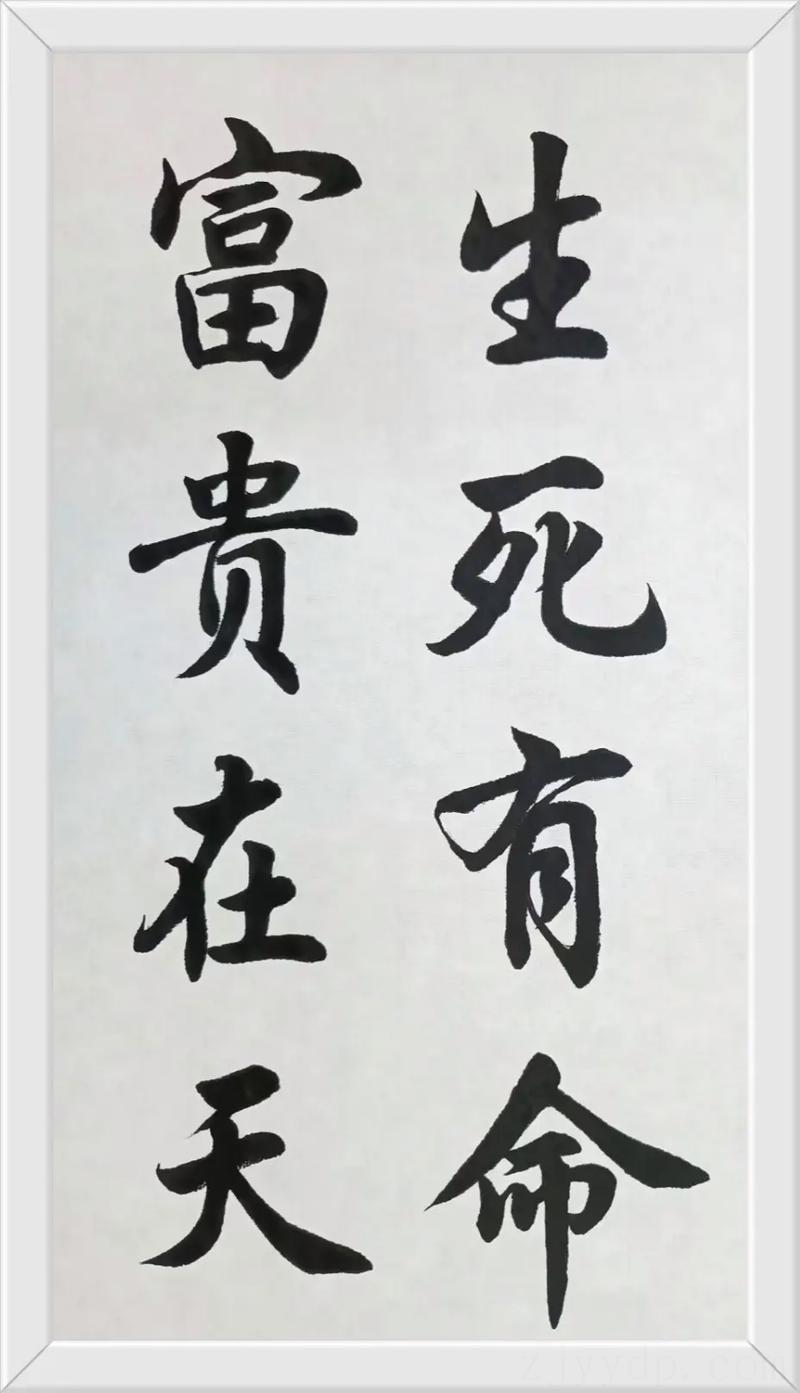 生死有命
富贵在天
zjyydp.com